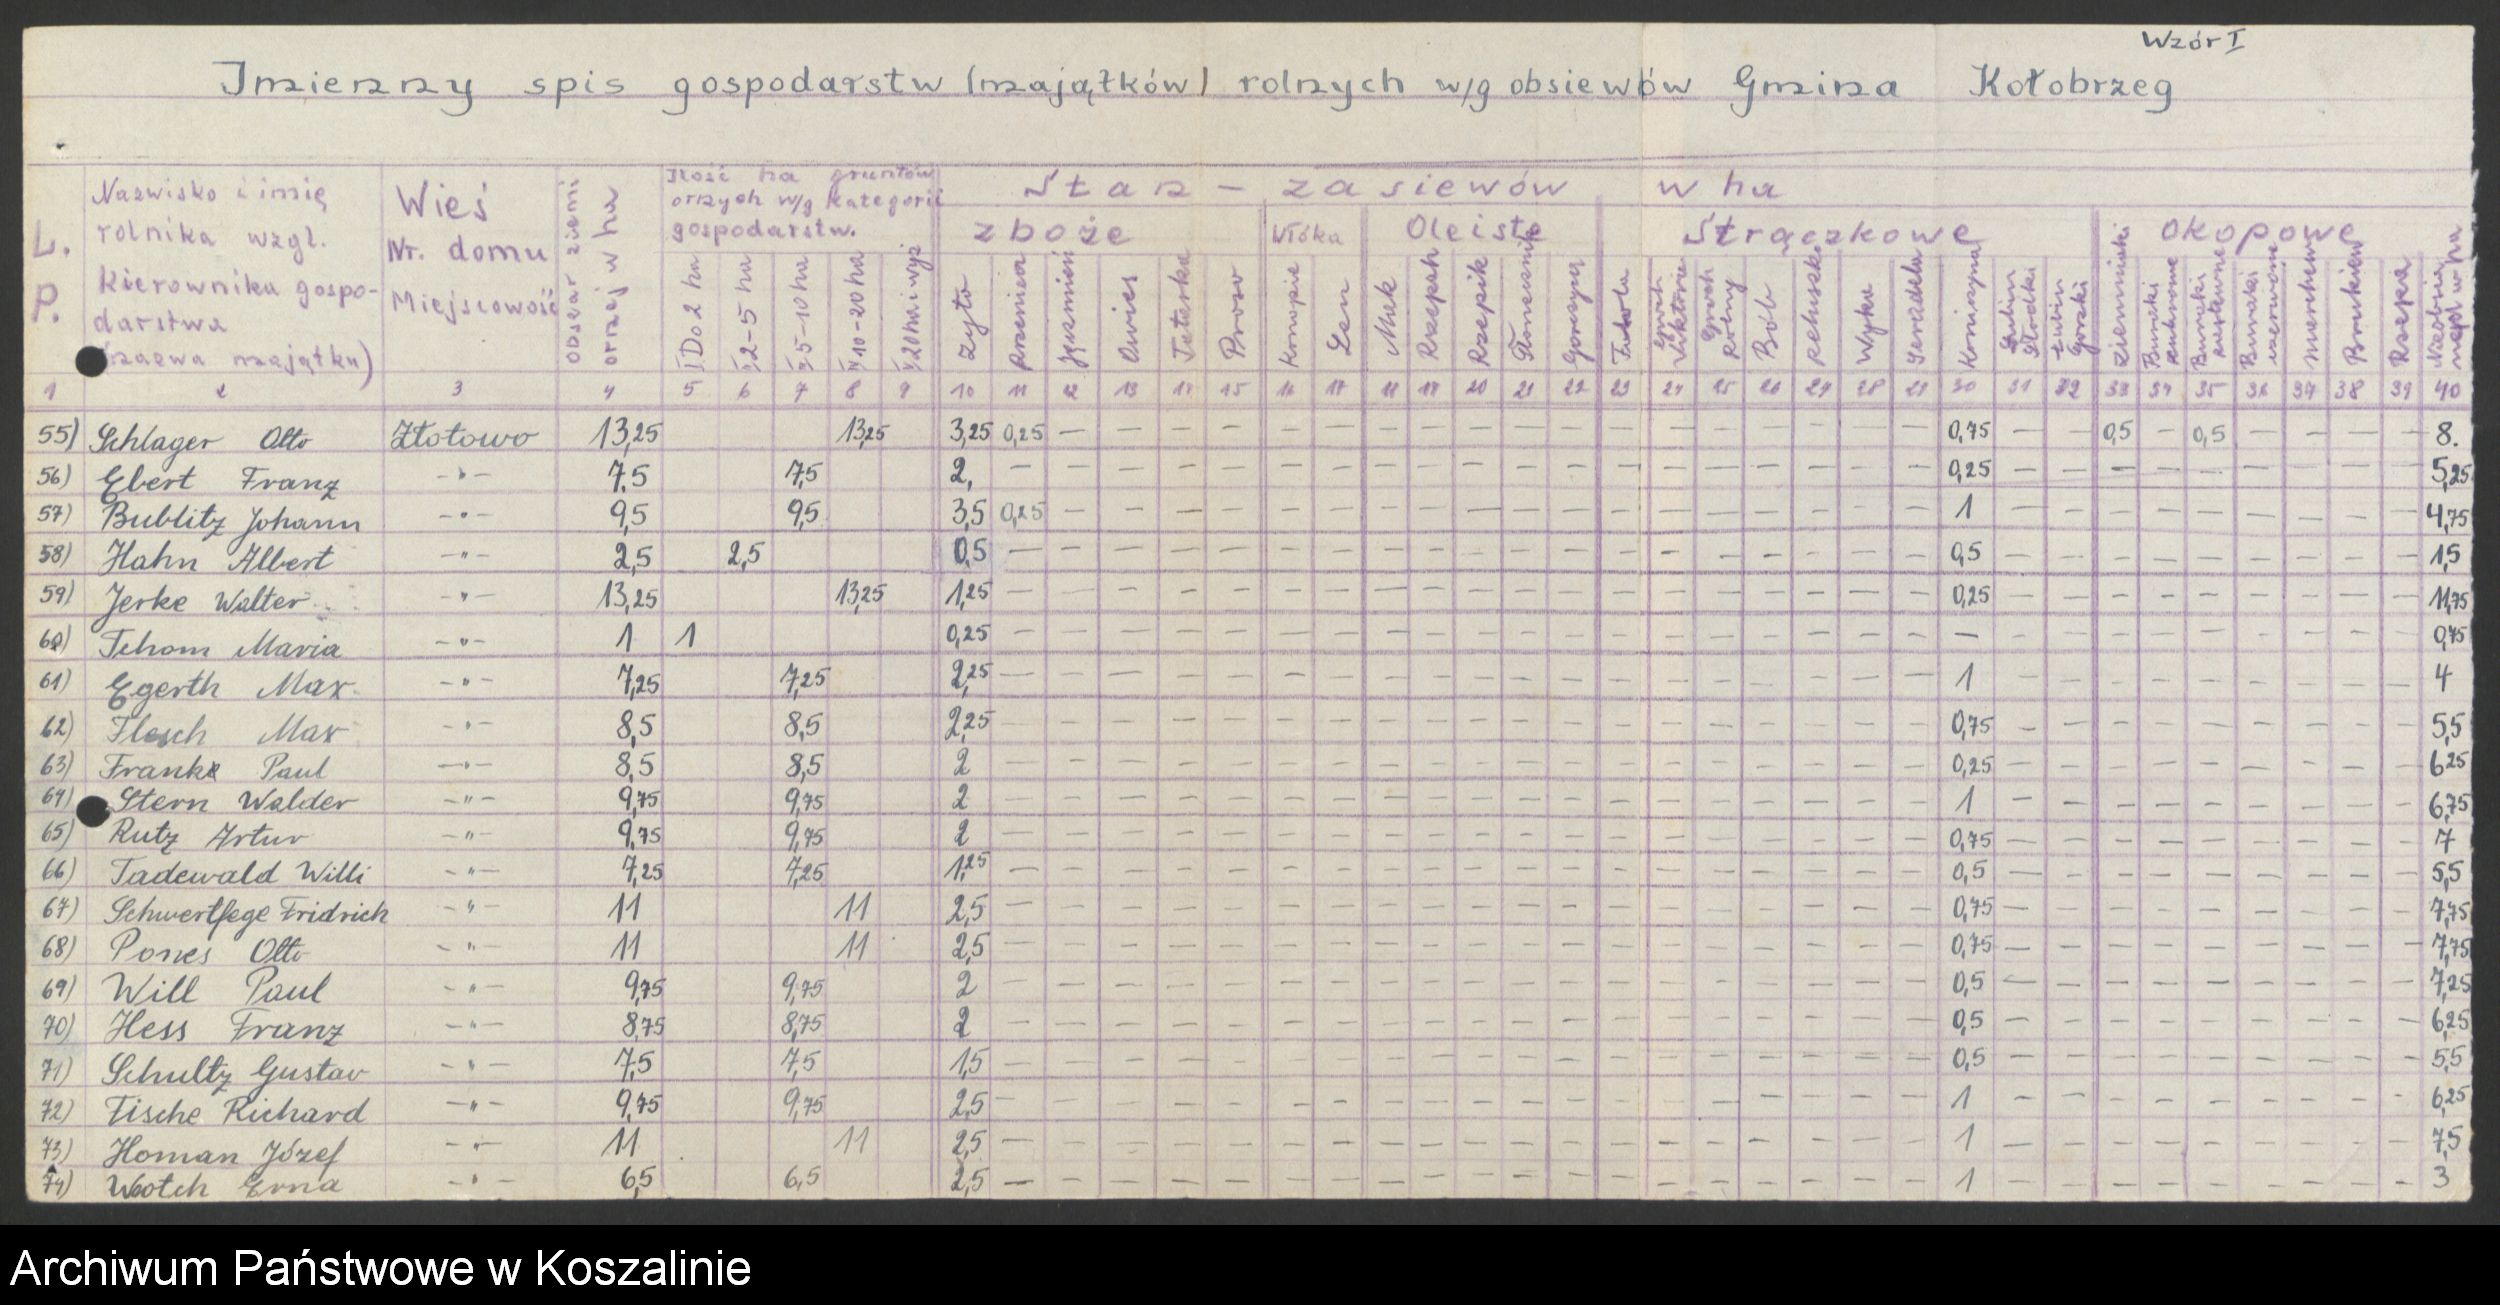 Wzór I
Imienny spis gospodarstw (majątków) rolnych w/g obsiewów Gmina Kołobrzeg
L. P.
Nazwisko i imię rolnika wzgl. kierownika gospodarstwa (nazwa majątku)
Wieś Nr. domu Miejscowość
obszar ziemi ornej w ha
Ilość ha gruntów ornych w/g kategorii gospodarstw.
I Do 2 ha
II 2-5 ha
III 5-10 ha
IV 10-20 ha
V 20 ha i wyż
Stan - zasiewów w ha
zboże
Włóka
Oleiste
Strączkowe
Okopowe
Żyto
Pszenica
Jęczmień
Owies
Tatarka
Proso
Konopie
Len
Mak
Rzepak
Rzepik
Słonecznik
Gorczyca
Groch Viktoria
Groch Polny
Bób
Peluszka
Wyka
Seradela
Koniczyna
Łubin Słodki
Łubin Gorzki
Ziemniaki
Buraki cukrowe
Buraki pastewne
Buraki czerwone
Marchew
Brukiew
Rzepa
1 2 3 4 5 6 7 8 9 10 11 12 13 14 15 16 17 18 19 20 21 22 23 24 25 26 27 28 29 30 31 32 33 34 35 36 37 38 39 40
55) Schlager Otto Złotowo 13,25 13,25 3,25 0,25 — — — — — — — — — — — — — — — — — — 0,75 — — 0,5 — 0,5 — — — — 8.
56) Ebert Franz -"- 7,5 7,5 2, — — — — — — — — — — — — — — — — — — — 0,25 — — — — — — — — — 5,25
57) Bublitz Johann -"- 9,5 9,5 3,5 0,25 — — — — — — — — — — — — — — — — — — 1 — — — — — — — — — 4,75
58) Hahn Albert -"- 2,5 2,5 0,5 — — — — — — — — — — — — — — — — — — — 0,5 — — — — — — — — — 1,5
59) Jerke Walter -"- 13,25 13,25 1,25 — — — — — — — — — — — — — — — — — — — 0,25 — — — — — — — — — 11,75
60) Tchom Maria -"- 1 1 0,25 — — — — — — — — — — — — — — — — — — — — — — — — — — — — — 0,75
61) Egerth Max -"- 7,25 7,25 2,25 — — — — — — — — — — — — — — — — — — — 1 — — — — — — — — — 4
62) Flesch Max -"- 8,5 8,5 2,25 — — — — — — — — — — — — — — — — — — — 0,75 — — — — — — — — — 5,5
63) Franke Paul -"- 8,5 8,5 2 — — — — — — — — — — — — — — — — — — — 0,25 — — — — — — — — — 6,25
64) Stern Walder -"- 9,75 9,75 2 — — — — — — — — — — — — — — — — — — — 1 — — — — — — — — — 6,75
65) Rutz Artur -"- 9,75 9,75 2 — — — — — — — — — — — — — — — — — — — 0,75 — — — — — — — — — 7
66) Tadewald Willi -"- 7,25 7,25 1,25 — — — — — — — — — — — — — — — — — — — 0,5 — — — — — — — — — 5,5
67) Schwertfege Fridrich -"- 11 11 2,5 — — — — — — — — — — — — — — — — — — — 0,75 — — — — — — — — — 7,75
68) Pones Otto -"- 11 11 2,5 — — — — — — — — — — — — — — — — — — — 0,75 — — — — — — — — — 7,75
69) Will Paul -"- 9,75 9,75 2 — — — — — — — — — — — — — — — — — — — 0,5 — — — — — — — — — 7,25
70) Hess Franz -"- 8,75 8,75 2 — — — — — — — — — — — — — — — — — — — 0,5 — — — — — — — — — 6,25
71) Schultz Gustav -"- 7,5 7,5 1,5 — — — — — — — — — — — — — — — — — — — 0,5 — — — — — — — — — 5,5
72) Tische Richard -"- 9,75 9,75 2,5 — — — — — — — — — — — — — — — — — — — 1 — — — — — — — — — 6,25
73) Homan Józef -"- 11 11 2,5 — — — — — — — — — — — — — — — — — — — 1 — — — — — — — — — 7,5
74) Wotch Erna -"- 6,5 6,5 2,5 — — — — — — — — — — — — — — — — — — — 1 — — — — — — — — — 3
Archiwum Państwowe w Koszalinie